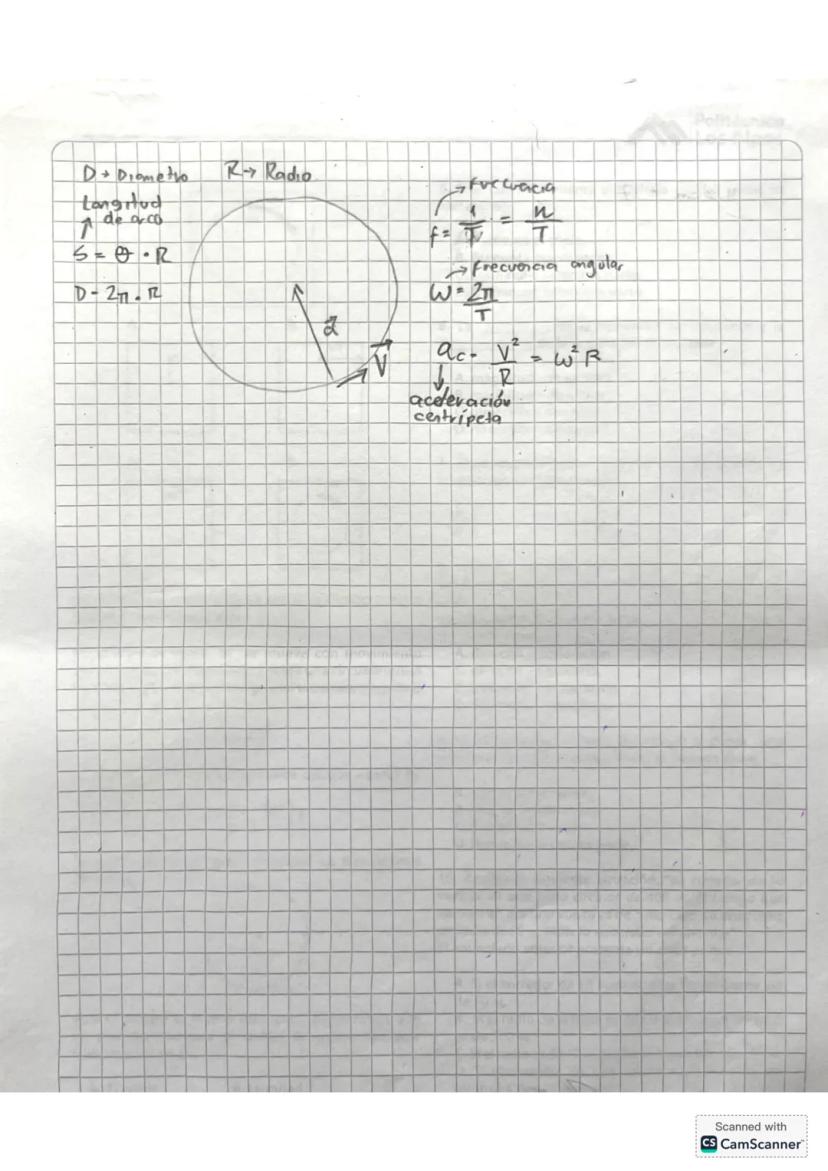 D → Diametro R → Radio
Longitud
de arco
S = θ · R
D = 2π · R
a
V
Frecuencia
f = 1/T = n/T
Frecuencia angular
ω = 2π/T
ac = V²/R = ω² R
aceleración
centrípeta
Scanned with
CS CamScanner